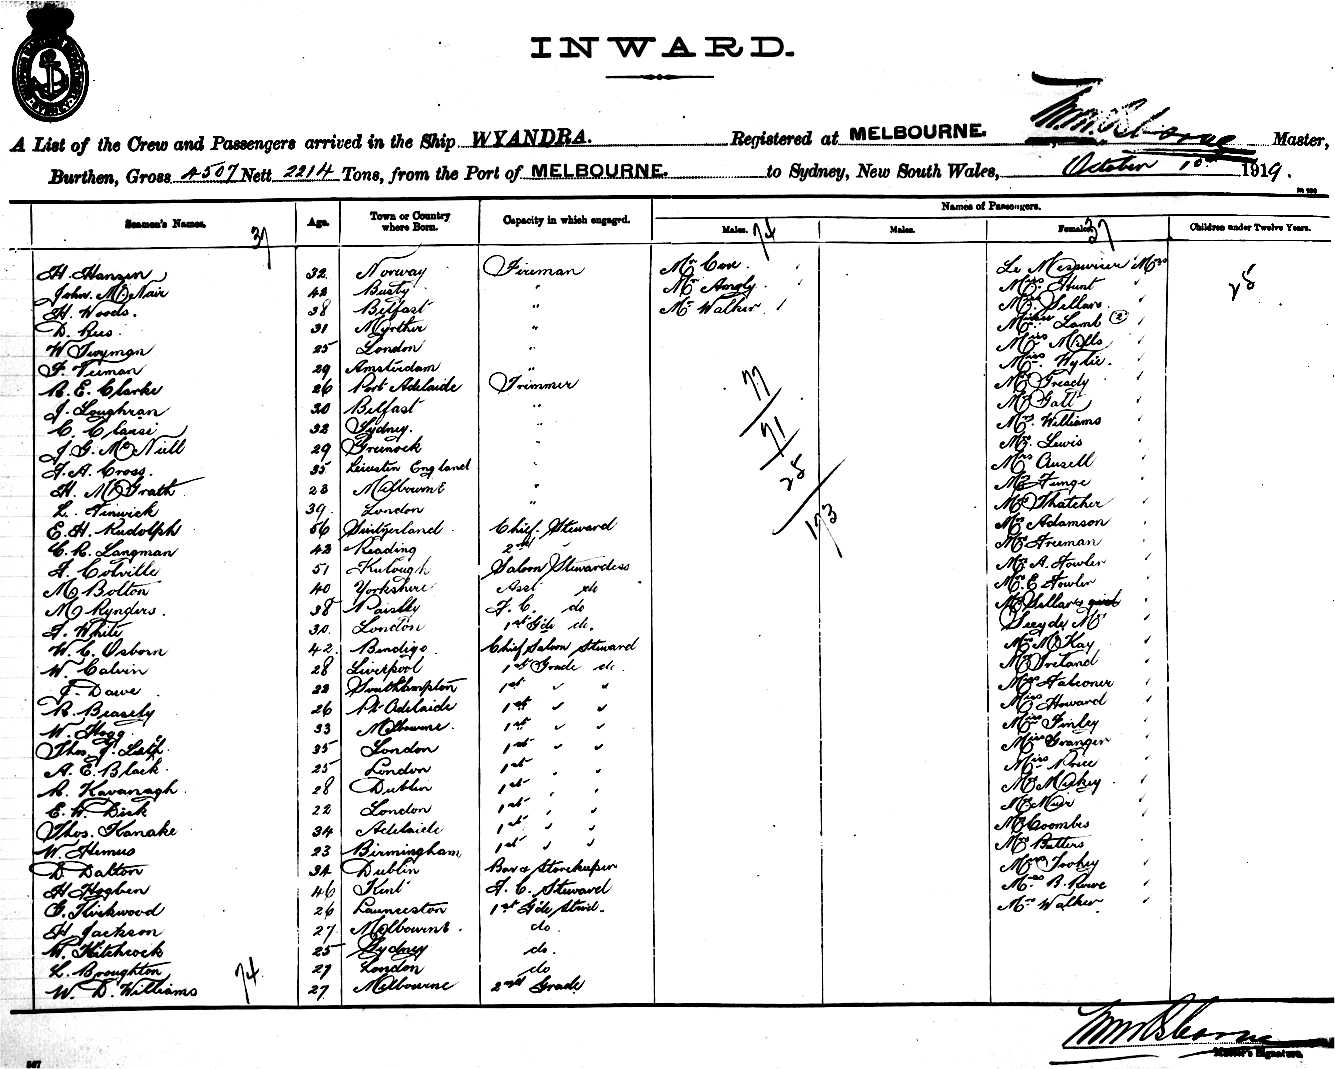 INWARD.
A List of the Crew and Passengers arrived in the Ship WYANDRA. Registered at MELBOURNE. Master,
Burthen, Gross 4507 Nett 2214 Tons, from the Port of MELBOURNE. to Sydney, New South Wales, October 1st 1919.
Names of Passengers.
Seamen's Names. Age. Town or Country where Born. Capacity in which engaged. Males. Males. Females. Children under Twelve Years.
37 74 37
H. Hansen 32 Norway Fireman Mr Cox Le Messurier Mrs
John. McNair 42 Mr Angly Miss Hunt 25
H. Woods. 38 Belfast " Mr Walker Mrs Sellars
D. Rees 31 " Lamb (2)
W Twyman 25 London " Miss Mills
F. 29 Amsterdam " Miss Wylie.
R. E. Clarke 26 Port Adelaide Trimmer 77
J. Loughran 30 Belfast " Gatt
C. 32 Sydney. " Mrs. Williams
J. G. McNeill 29 Greenock " 71 Lewis
F. A. Cross. 35 Leicester England " Mrs Ansell
H. McGrath 23 Melbourne " 25
L. Fenwick 39 London " Thatcher
E. H. Rudolph 56 Switzerland Chief. Steward 173 Mrs Adamson
C. R. Langman 42 Reading 2nd " Freeman
A. Colville 51 Saloon Stewardess A. Fowler
M. Bolton 40 Yorkshire Asst do E Fowler
M. Rynders. 38 Paisley F. C. do Sellars
A. White 30. London 1st Gde do. Mrs
W. C. Osborn 42. Bendigo. Chief Saloon Steward McKay
W. Calvin 28 Liverpool 1st Grade do. Ireland
F. Dawe 22 Southampton 1st " " Falconer
R. Beasely 26 Pt Adelaide 1st " " Miss Howard
W. Hogg. 33 Melbourne. 1st " " Miss Finley
Thos. J. 35 London 1st " " Miss Granger
A. E. Black. 25 London 1st " " Miss
R. Kavanagh. 28 Dublin 1st " " Mickey
E. W. Dick 22 London 1st " " Muir
Thos. Kanake 34 Adelaide 1st " " Coombes
W. Hemus 23 Birmingham 1st " " Mrs Butters
D Dalton 34 Dublin Bar & Storekeeper Mrs Toohey
H Hogben 46 Kent F. C. Steward Mrs B. Rowe
G. Kirkwood 26 Launceston 1st Gde Stwd. Mrs Walker
H. Jackson 27 Melbourne. do.
W. Hitchcock 25 Sydney do.
L. Broughton 27 London do
W. D. Williams 74 27 Melbourne 2nd Grade
Master's Signature.